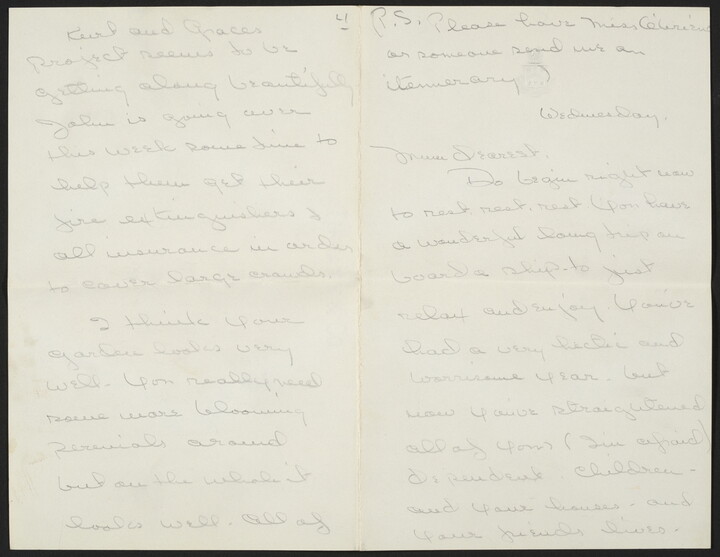 P.S. Please have Miss O'Brien
or someone send me an
itemerary
Wednesday.
Mum dearest,
Do begin right now
to rest, rest, rest. You have
a wonderful long trip on
board a ship - to just
relax and enjoy. You've
had a very hectic and
worrisome year. but
now you've straightened
all of your (I'm afraid)
dependent children -
and your houses - and
your friends lives -
4
Kurt and Graces
project seems to be
getting along beautifully
John is going over
this week some time to
help them get their
fire extinguishers &
all insurance in order
to cover large crowds.
I think your
garden looks very
well - you really need
some more blooming
perenials around
but on the whole it
looks well. All of